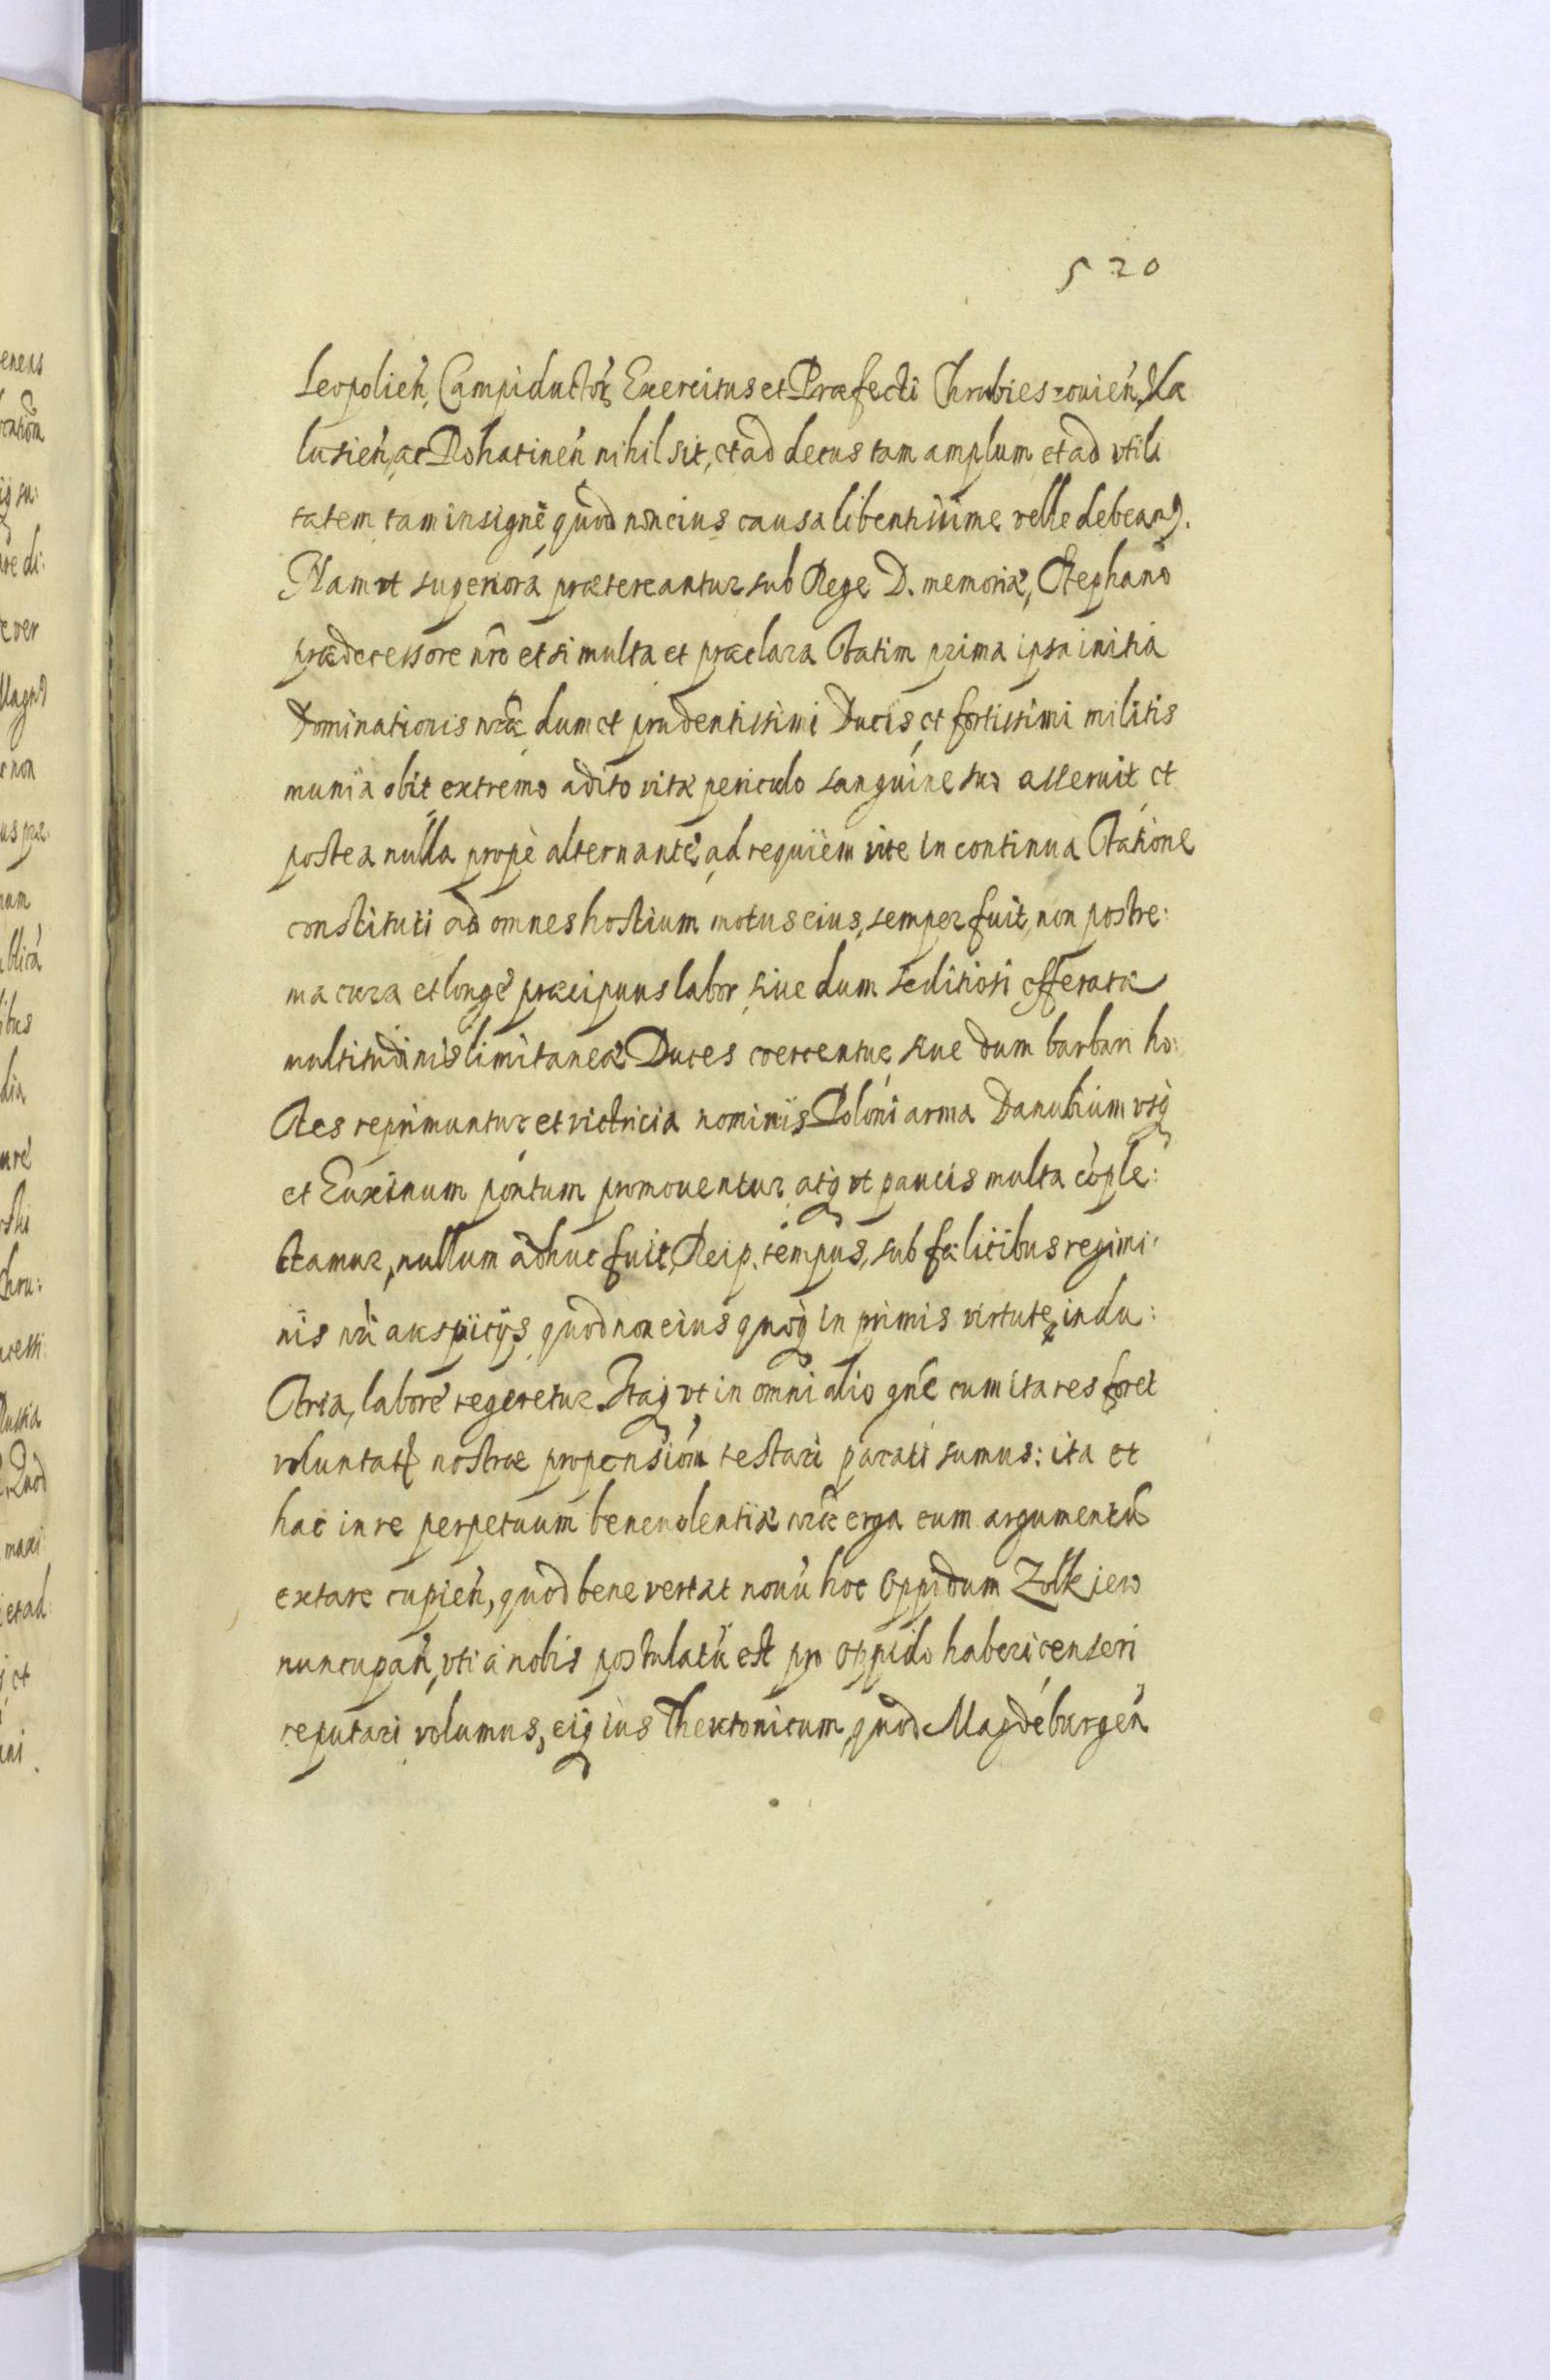 520
Leopolien, Campiductor Exercitus et Præfecti Chrubieszouien, Ka
lusien, ac Rohatinen nihil sit, et ad decus tam amplum et ad vtili
tatem tam insigne quod non eius causa libentissime velle debeam9.
Nam vt superiora prætereantur sub Rege D. memoriæ, Stephano
prædecessore nro etsi multa et præclara statim prima ipsa initia
Dominationis nræ dum et prudentissimi Ducis et fortissimi militis
munia obit extremo adito vitæ periculo sanguine suo asseruit et
postea nulla propè alternante ad requiem vice in continua statione
constituti ad omnes hostium motus eius, semper fuit, non postre:
ma cura et longè præcipuus labor, siue dum seditiosi efferatæ
multitudinis limitaneæ Duces coercentur, siue dum barbari ho:
stes reprimuntur et victricia nominis Poloni arma Danubium vsq
et Euxinum pontum promouentur, atq vt paucis multa cople:
ctamur, nullum adhuc fuit, Reip. tempus, sub fælicibus regimi:
nis nri auspicijs quod non eius quoq in primis virtute, indu:
stria, labore regeretur. Itaq vt in omni alio gne cum ita res foret
voluntatis nostræ propensiom testari parati sumus: ita et
hac in re perpetuum beneuolentiæ nræ erga eum argumentu
extare cupien, quod bene vertat nouu hoc oppidum Zolkiew
nuncupan, vti a nobis postulatu est pro oppido haberi censeri
reputari volumus, eiq ius Theutonicum, quod Magdeburgen